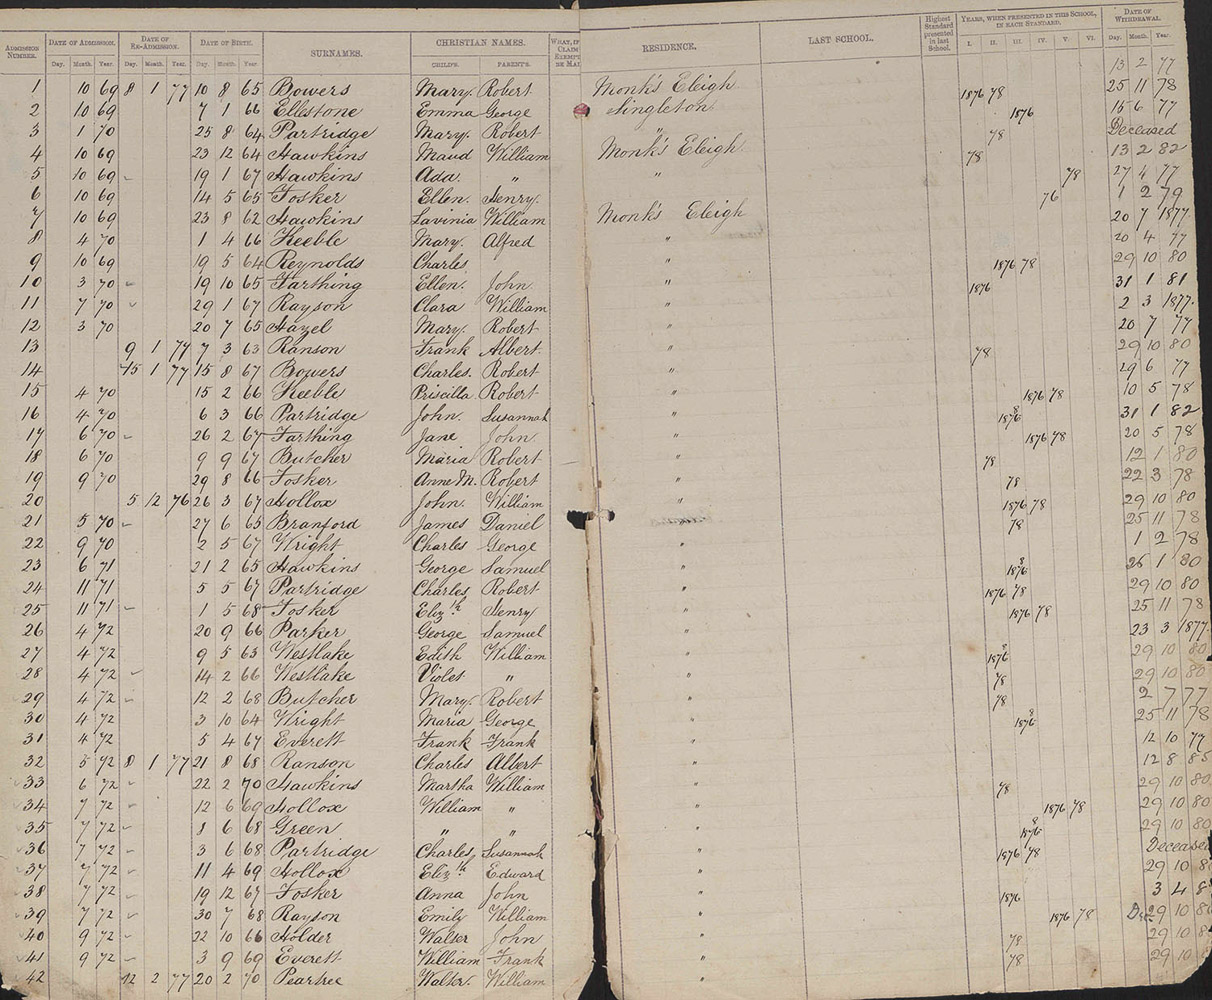 ADMISSION NUMBER. DATE OF ADMISSION. DATE OF RE-ADMISSION. DATE OF BIRTH. SURNAMES. CHRISTIAN NAMES. RESIDENCE. LAST SCHOOL. Highest Standard presented in last School. YEARS, WHEN PRESENTED IN THIS SCHOOL, IN EACH STANDARD. DATE OF WITHDRAWAL.
Day. Month. Year. Day. Month. Year. Day. Month. Year. CHILD'S. PARENT'S. I. II. III. IV. V. VI. Day. Month. Year.
13 2 77
1 10 69 8 1 77 10 8 65 Bowers Mary. Robert Monk's Eleigh 1876 78 25 11 78
2 10 69 7 1 66 Ellestone Emma George Singleton 1876 15 6 77
3 1 70 25 8 64 Partridge Mary. Robert " 78 Deceased
4 10 69 23 12 64 Hawkins Maud William Monk's Eleigh 78 13 2 82
5 10 69 19 1 67 Hawkins Ada. " " 78 27 4 77
6 10 69 14 5 65 Fosker Ellen. Henry. 76 1 2 79
7 10 69 23 8 62 Hawkins Lavinia William Monk's Eleigh 20 7 1877
8 4 70 1 4 66 Keeble Mary. Alfred " 20 4 77
9 10 69 19 5 64 Reynolds Charles " 1876 78 29 10 80
10 3 70 19 10 65 Farthing Ellen. John " 1876 31 1 81
11 7 70 29 1 67 Rayson Clara William " 2 3 1877.
12 3 70 20 7 65 Hazel Mary. Robert " 20 7 77
13 9 1 77 7 3 63 Ranson Frank Albert. " 78 29 10 80
14 15 1 77 15 8 67 Bowers Charles. Robert " 6 77
15 4 70 15 2 66 Keeble Priscilla Robert " 1876 78 10 5 78
16 4 70 6 3 66 Partridge John. Susannah " 1876 31 1 82
17 6 70 26 2 67 Farthing Jane John. " 1876 78 20 5 78
18 6 70 9 9 67 Butcher Maria Robert " 78 12 1 80
19 9 70 29 8 66 Fosker Anne M. Robert " 78 22 3 78
20 5 12 76 26 3 67 Hollox John. William " 1876 78 29 10 80
21 5 70 27 6 65 Branford James Daniel 78 25 11 78
22 9 70 2 5 67 Wright Charles George " 1 2 78
23 6 71 21 2 65 Hawkins George Samuel " 1876 26 1 80
24 11 71 5 5 67 Partridge Charles Robert " 1876 78 29 10 80
25 11 71 1 5 68 Fosker Elizth Henry " 1876 78 25 11 78
26 4 72 20 9 66 Parker George Samuel " 23 3 1877.
27 4 72 9 5 63 Westlake Edith William " 1876 29 10 80
28 4 72 14 2 66 Westlake Violet " " 78 29 10 80
29 4 72 12 2 68 Butcher Mary. Robert " 78 2 7 77
30 4 72 3 10 64 Wright Maria George " 1876 25 11 78
31 4 72 5 4 67 Everett Frank Frank " 12 10 77
32 5 72 8 1 77 21 8 68 Ranson Charles Albert " 12 8 85
33 6 72 22 2 70 Hawkins Martha William " 78 29 10 80
34 7 72 12 6 69 Hollox William " " 1876 78 29 10 80
35 7 72 8 6 68 Green " " " 1876 29 10 80
36 7 72 3 6 68 Partridge Charles Susannah " 1876 78 Deceased
37 7 72 11 4 69 Hollox Elizth Edward " 29 10
38 7 72 19 12 67 Fosker Anna John " 1876 3 4
39 7 72 30 7 68 Rayson Emily William " 1876 78 29 10
40 9 72 22 10 66 Holder Walter John " 78 29 10
41 9 72 3 9 69 Everett William Frank " 78 29 10
42 12 2 77 20 2 70 Peartree Walter. William "